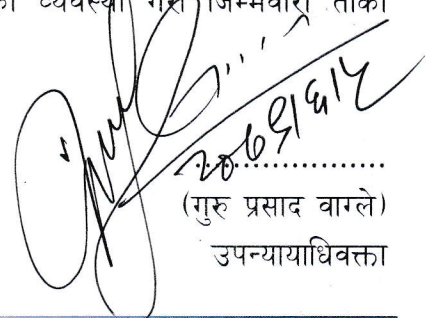 व्यवस्था गरी जिम्मेवारी तोकी
(गुरु प्रसाद वाग्ले)
उपन्यायाधिवक्ता